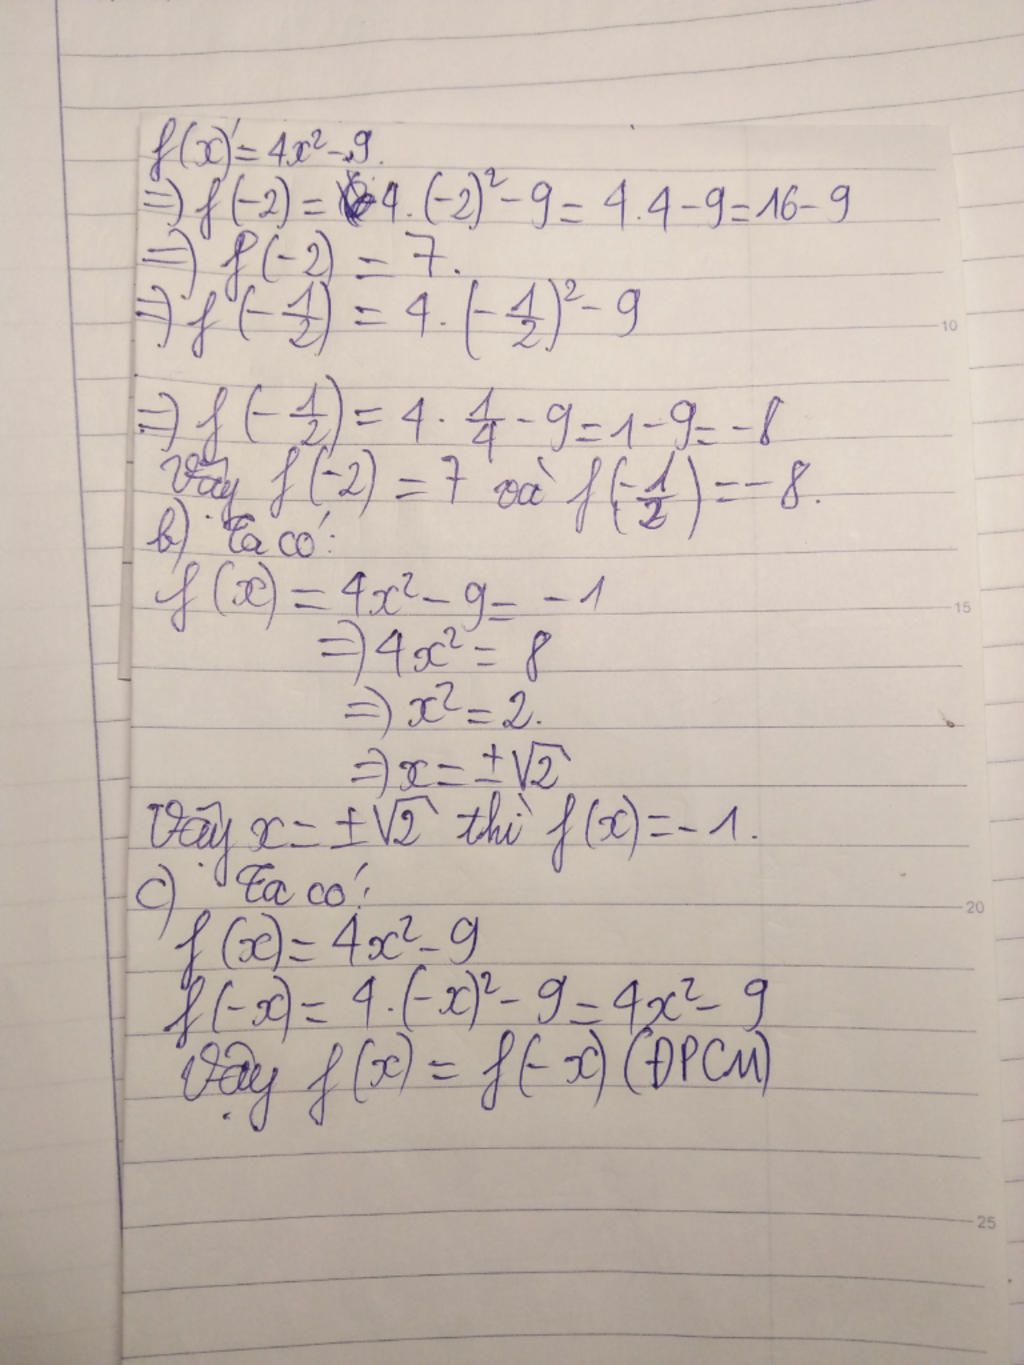 f(x) = 4x² - 9.
=) f(-2) = 4. (-2)² - 9 = 4.4 - 9 = 16 - 9
=) f(-2) = 7.
=) f(-1/2) = 4. (-1/2)² - 9
10
=) f(-1/2) = 4. 1/4 - 9 = 1 - 9 = -8
Vậy f(-2) = 7 và f(-1/2) = -8.
b) Ta có:
f(x) = 4x² - 9 = -1
15
=) 4x² = 8
=) x² = 2.
=) x = ±√2
Vậy x = ±√2 thì f(x) = -1.
c) Ta có:
20
f(x) = 4x² - 9
f(-x) = 4.(-x)² - 9 = 4x² - 9
Vậy f(x) = f(-x) (ĐPCM)
25